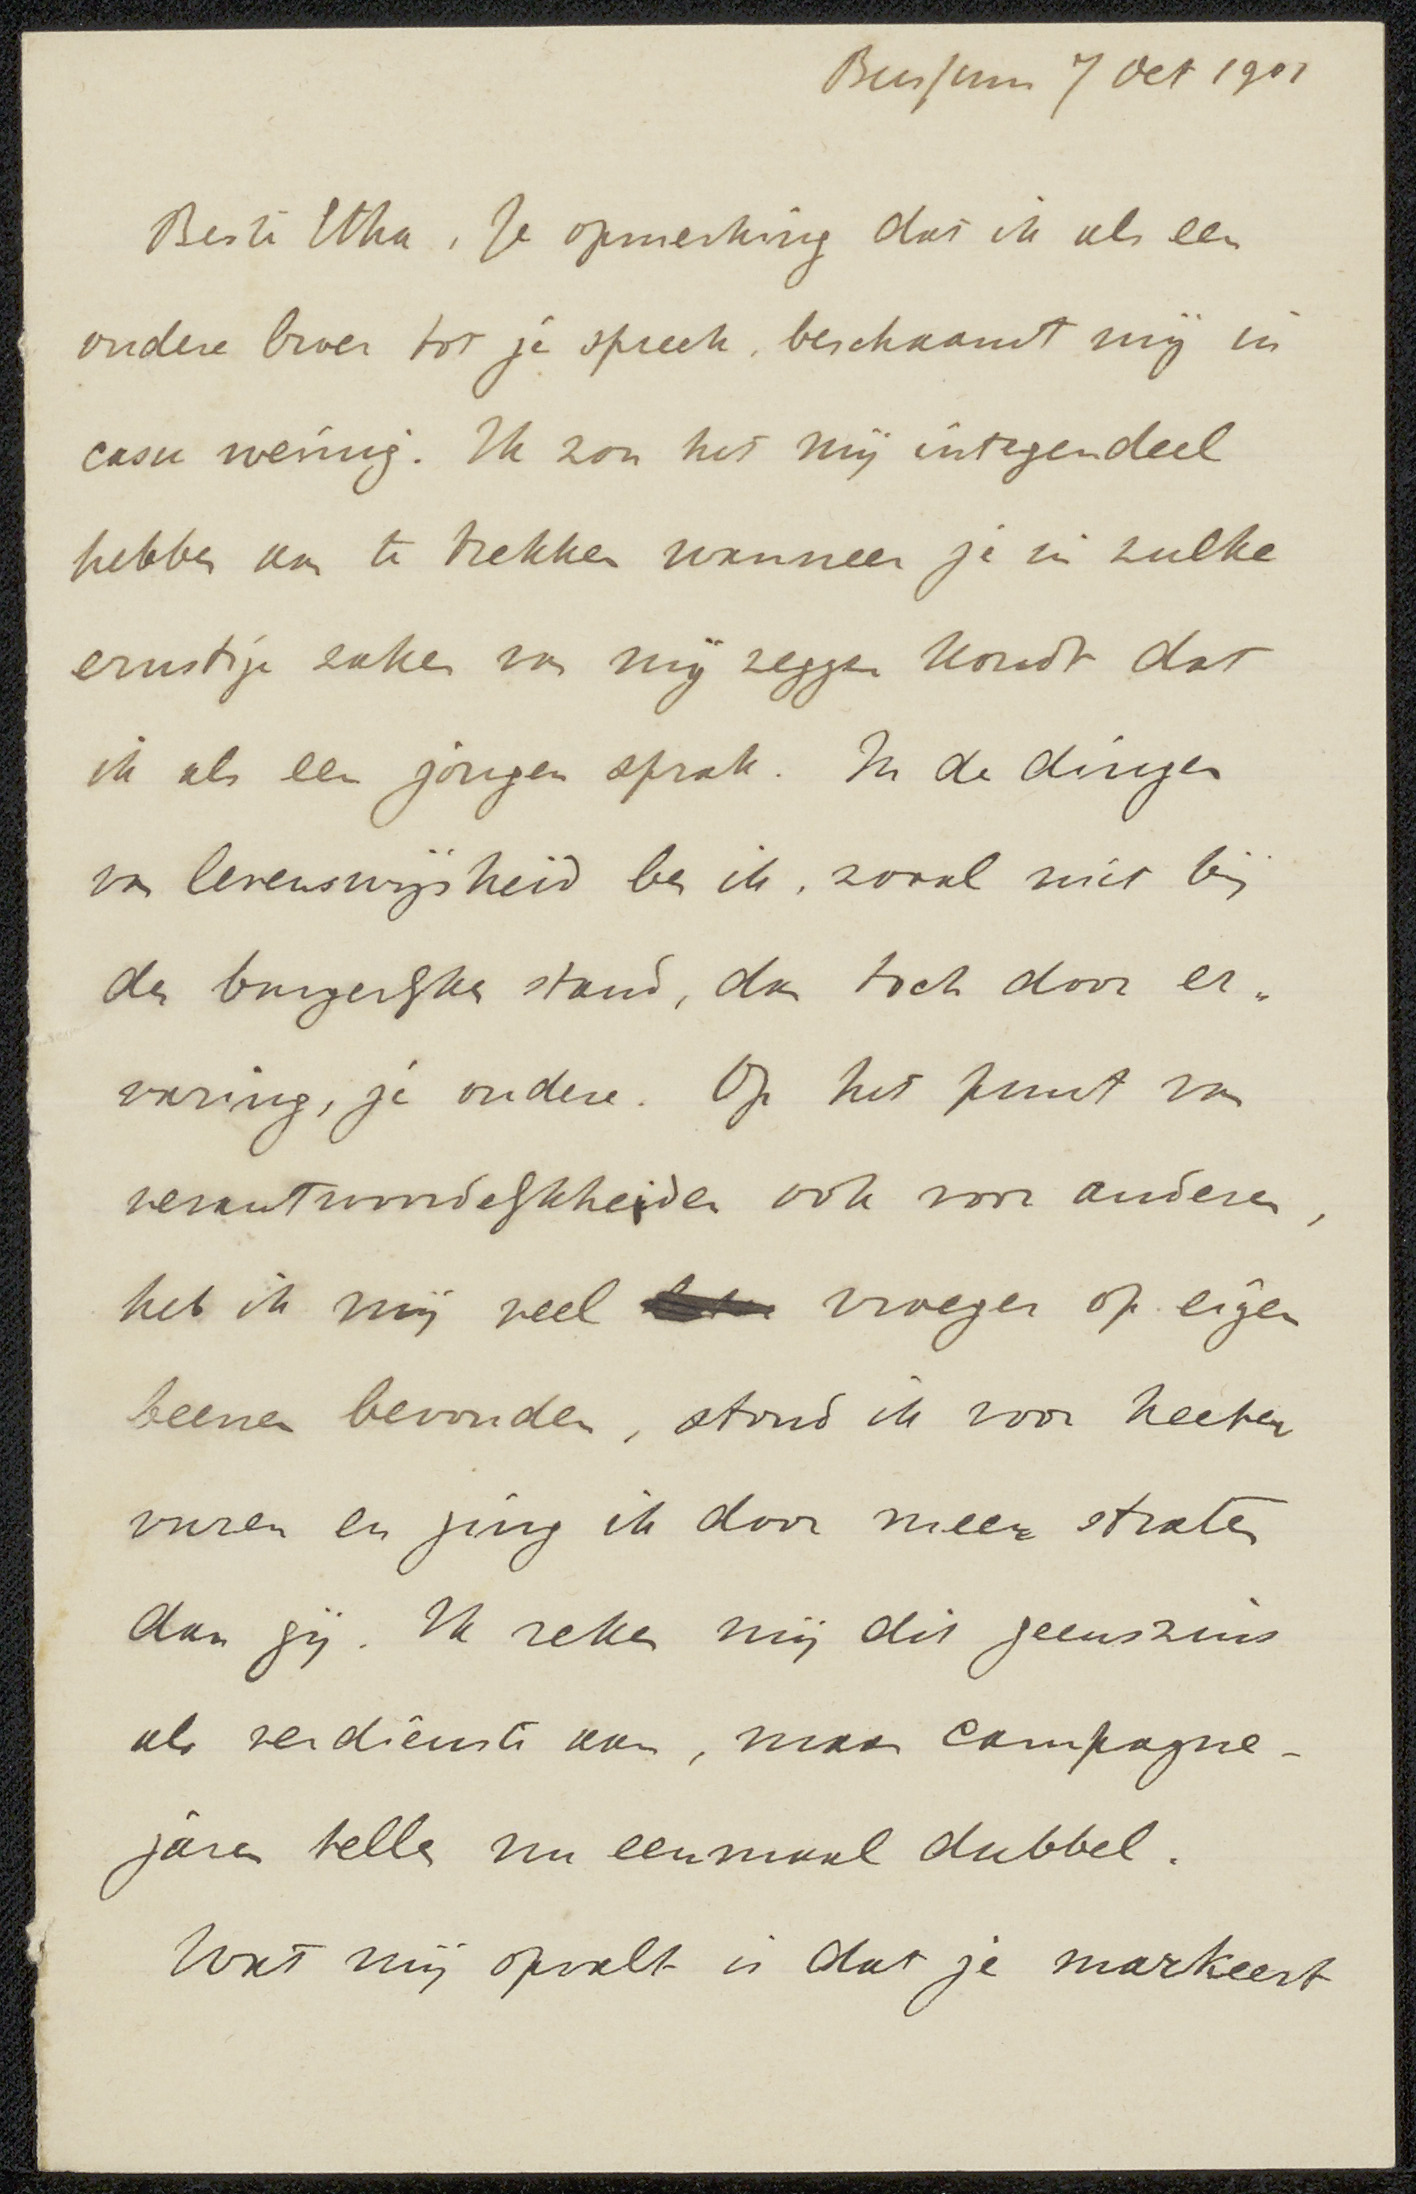 Bussum 7 Oct 1901
Beste Etha, Je opmerking dat ik als een
oudere broer tot je spreek, beschaamt mij in
casu weinig. Ik zou het mij integendeel
hebben aan te trekken wanneer je in zulke
ernstige zaken van mij zeggen kondt dat
ik als een jongen sprak. In de dingen
van levenswijsheid ben ik, zooal niet bij
den burgerlijken stand, dan toch door er-
varing, je oudere. Op het punt van
verantwoordelijkheiden ook voor anderen,
heb ik mij veel vroeger op eigen
beenen bevonden, stond ik voor heeter
vuren en ging ik door meer straten
dan gij. Ik reken mij dit geenszins
als verdienste aan, maar campagne-
jaren tellen nu eenmaal dubbel.
Wat mij opvalt is dat je markeert